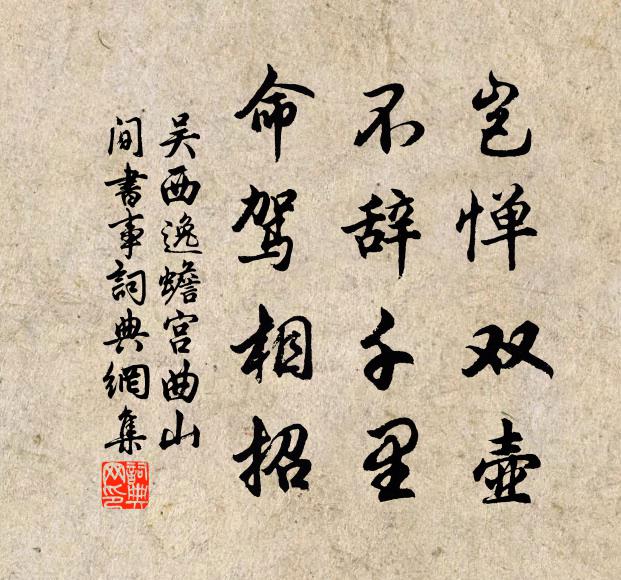 岂惮双壶
不辞千里
命驾相招
吴西逸蟾宫曲山
间书事詞典網集
詞典网印